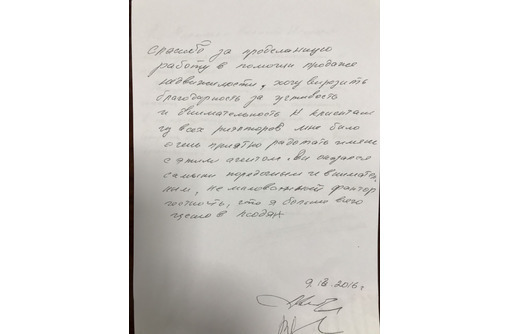 Спасибо за проделанную
работу в помощи продаже
недвижимости, хочу выразить
благодарность за
и внимательность к клиентам
из всех риэлторов мне было
очень приятно работать именно
с этим агентом. Он оказался
самыми порядочным и внимате
ным, не маловажный фактор
честность, что я больше всего
ценю в людях
9. .2016г